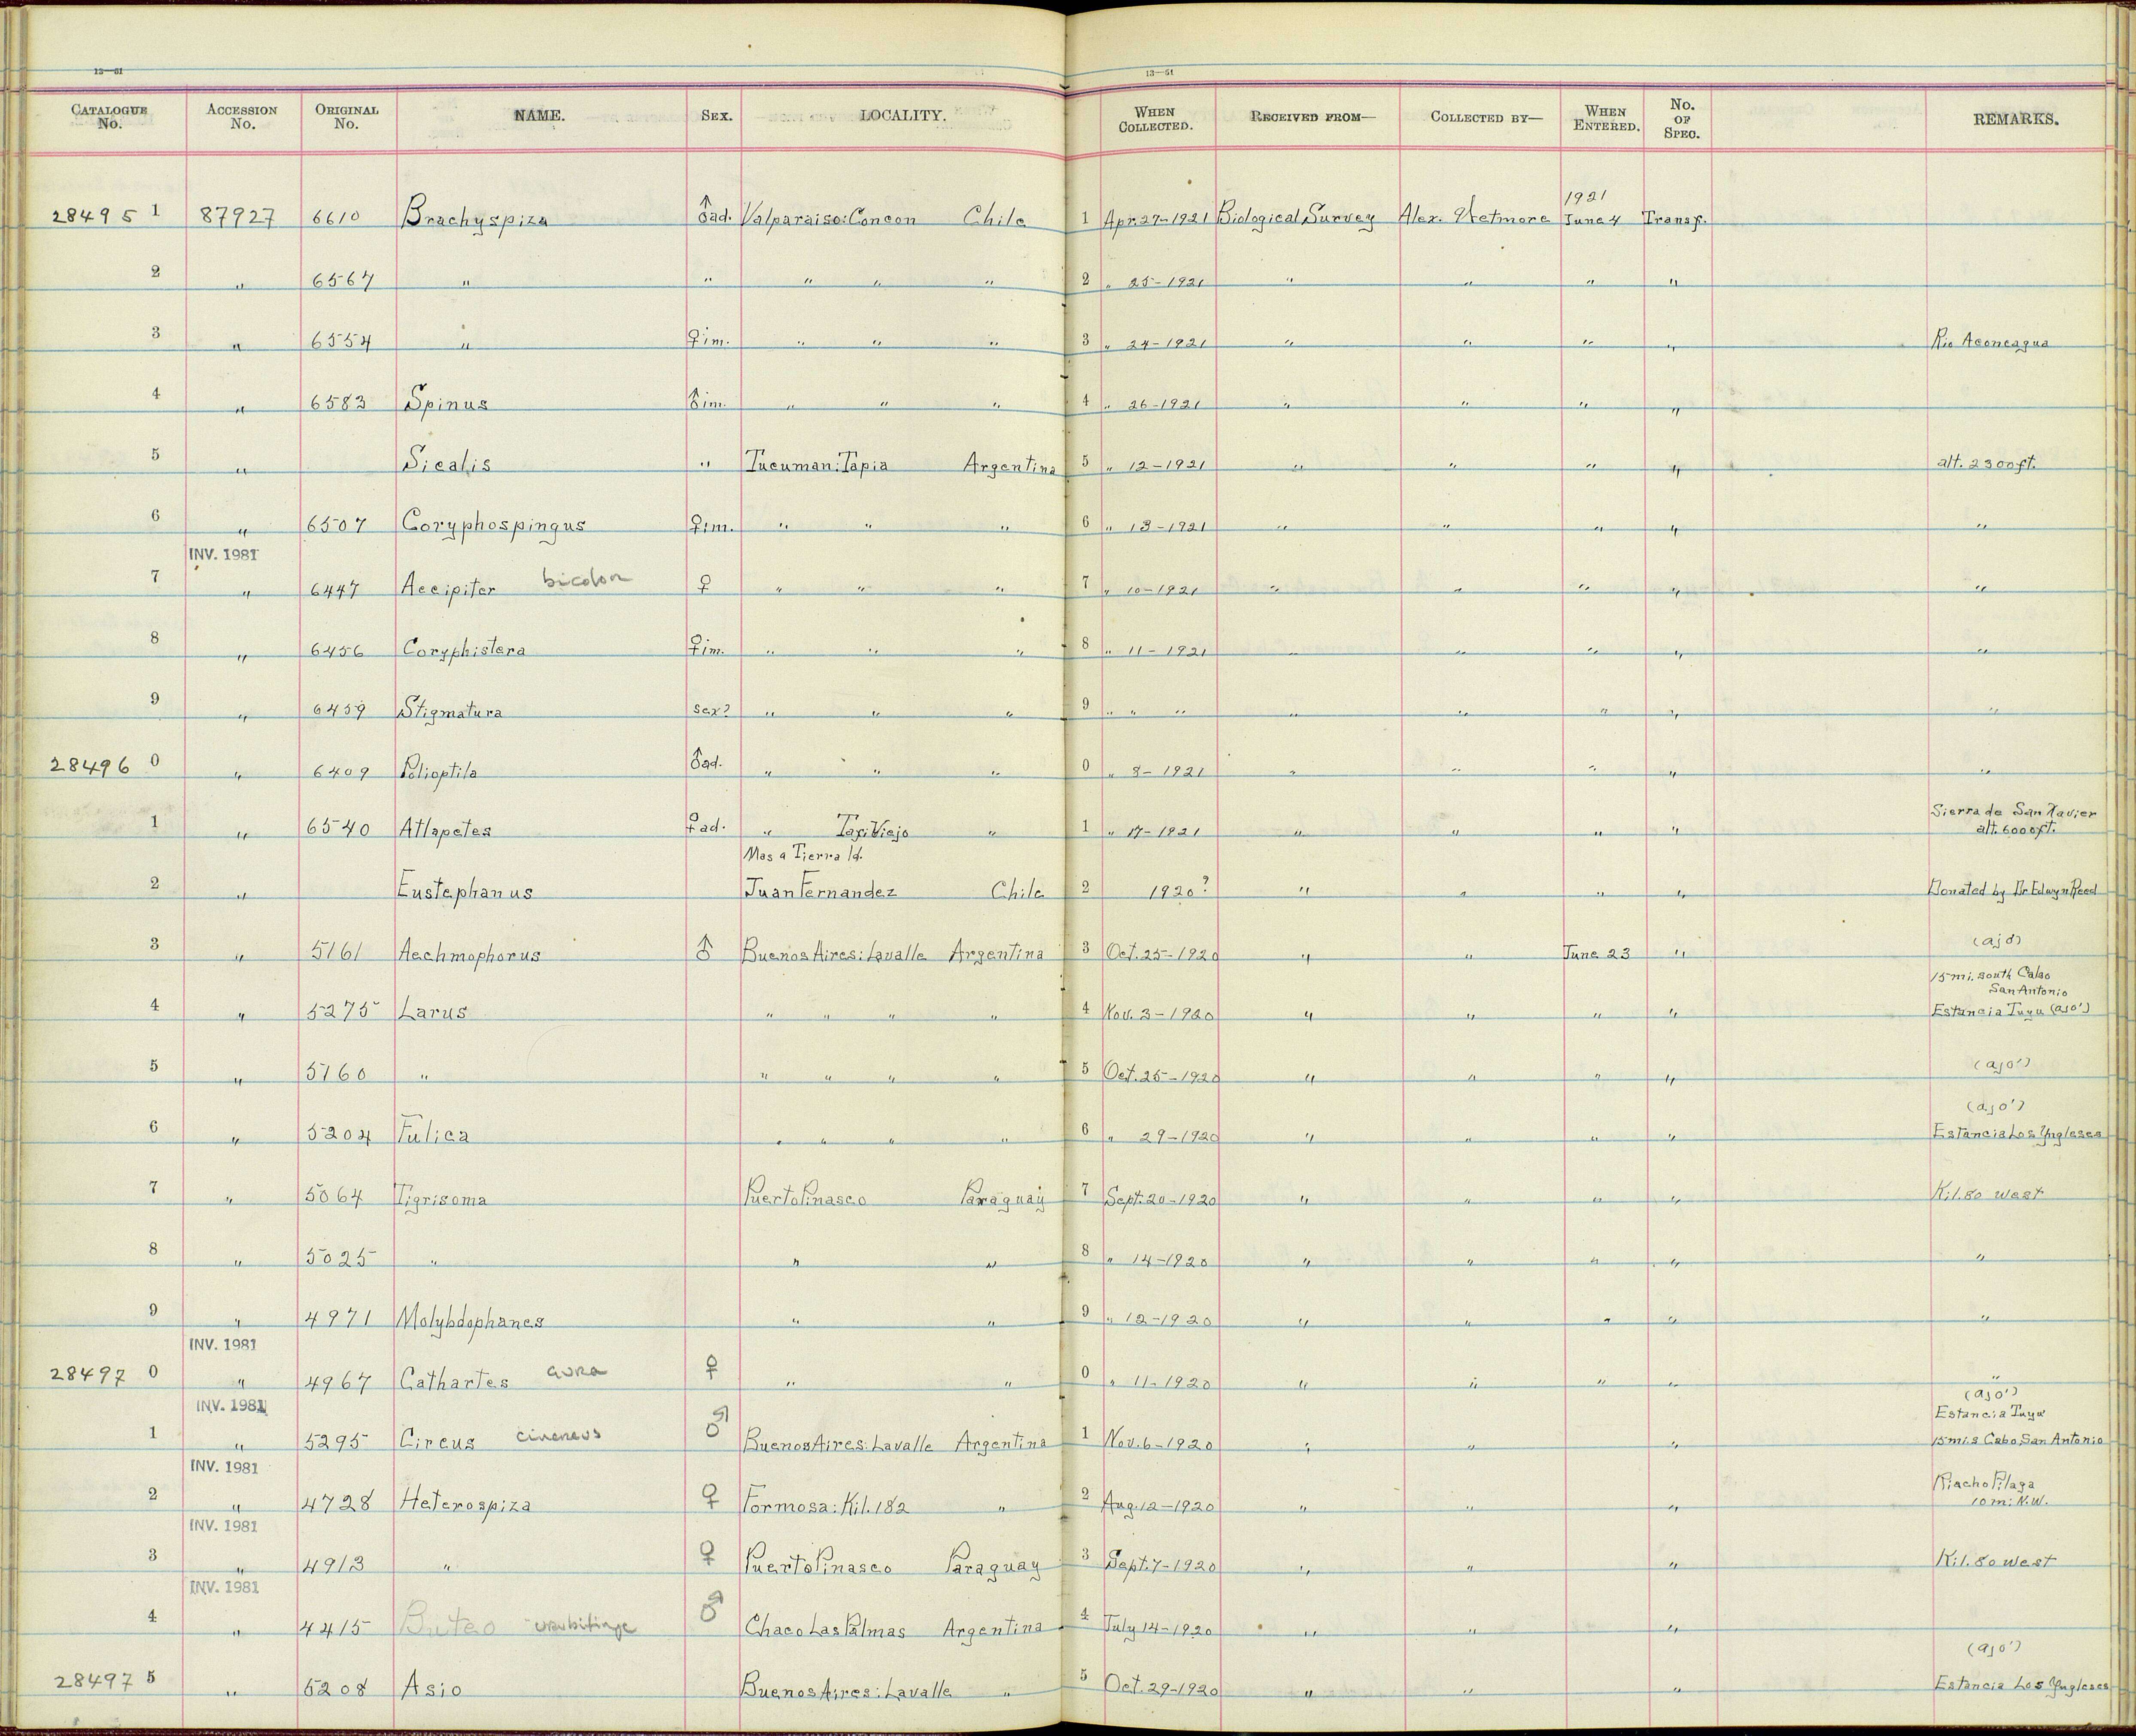 13—51 13—51
CATALOGUE No. ACCESSION No. ORIGINAL No. NAME. SEX. LOCALITY. WHEN COLLECTED. RECEIVED FROM— COLLECTED BY— WHEN ENTERED. No. OF SPEC. REMARKS.
1921
28495 1 87927 6610 Brachyspiza ♂ad. Valparaiso: Concon Chile 1 Apr. 27-1921 Biological Survey Alex. Wetmore June 4 Transf.
2 " 6567 " " " " " 2 " 25-1921 " " " "
3 " 6554 " ♀im. " " " 3 " 24-1921 " " " " Rio Aconcagua
4 " 6583 Spinus ♂im. " " " 4 " 26-1921 " " " "
5 " Sicalis " Tucuman: Tapia Argentina 5 " 12-1921 " " " " alt. 2300ft.
6 " 6507 Coryphospingus ♀im. " " " 6 " 13-1921 " " " " "
INV. 1981
7 " 6447 Accipiter bicolor ♀ " " " 7 " 10-1921 " " " " "
8 " 6456 Coryphistera ♀im. " " " 8 " 11-1921 " " " " "
9 " 6459 Stigmatura Sex? " " " 9 " " " " " " " "
28496 0 " 6409 Polioptila ♂ad. " " " 0 " 8-1921 " " " " "
Sierra de San Xavier
1 " 6540 Atlapetes ♀ad. " Tafi Viejo " 1 " 17-1921 " " " " alt. 6000ft.
Mas a Tierra Id.
2 " Eustephanus Juan Fernandez Chile 2 1920? " " " " Donated by Dr Edwyn Reed
(ajo')
3 " 5161 Aechmophorus ♂ Buenos Aires: Lavalle Argentina 3 Oct. 25-1920 " " June 23 "
15mi. south Cabo
San Antonio
4 " 5275 Larus " " " " 4 Nov. 3-1920 " " " " Estancia Tuyu (ajo')
5 " 5160 " " " " " 5 Oct. 25-1920 " " " " (ajo')
(ajo')
6 " 5204 Fulica " " " " 6 " 29-1920 " " " " Estancia Los Yngleses
7 " 5064 Tigrisoma Puerto Pinasco Paraguay 7 Sept. 20-1920 " " " " Kil. 80 west
8 " 5025 " " " 8 " 14-1920 " " " " "
9 " 4971 Molybdophanes " " 9 " 12-1920 " " " " "
INV. 1981
28497 0 " 4967 Cathartes aura ♀ " " 0 " 11-1920 " " " " "
INV. 1981 (ajo')
Estancia Tuyu
1 " 5295 Circus cinereus ♂ Buenos Aires: Lavalle Argentina 1 Nov. 6-1920 " " " 15mi. S Cabo San Antonio
INV. 1981
Riacho Pilaga
2 " 4728 Heterospiza ♀ Formosa: Kil. 182 " 2 Aug. 12-1920 " " " 10 mi N.W.
INV. 1981
3 " 4913 " ♀ Puerto Pinasco Paraguay 3 Sept. 7-1920 " " " Kil. 80 west
INV. 1981
4 " 4415 Buteo urubitinga ♂ Chaco Las Palmas Argentina 4 July 14-1920 " " "
(ajo')
28497 5 " 5208 Asio Buenos Aires: Lavalle " 5 Oct. 29-1920 " " " Estancia Los Yngleses